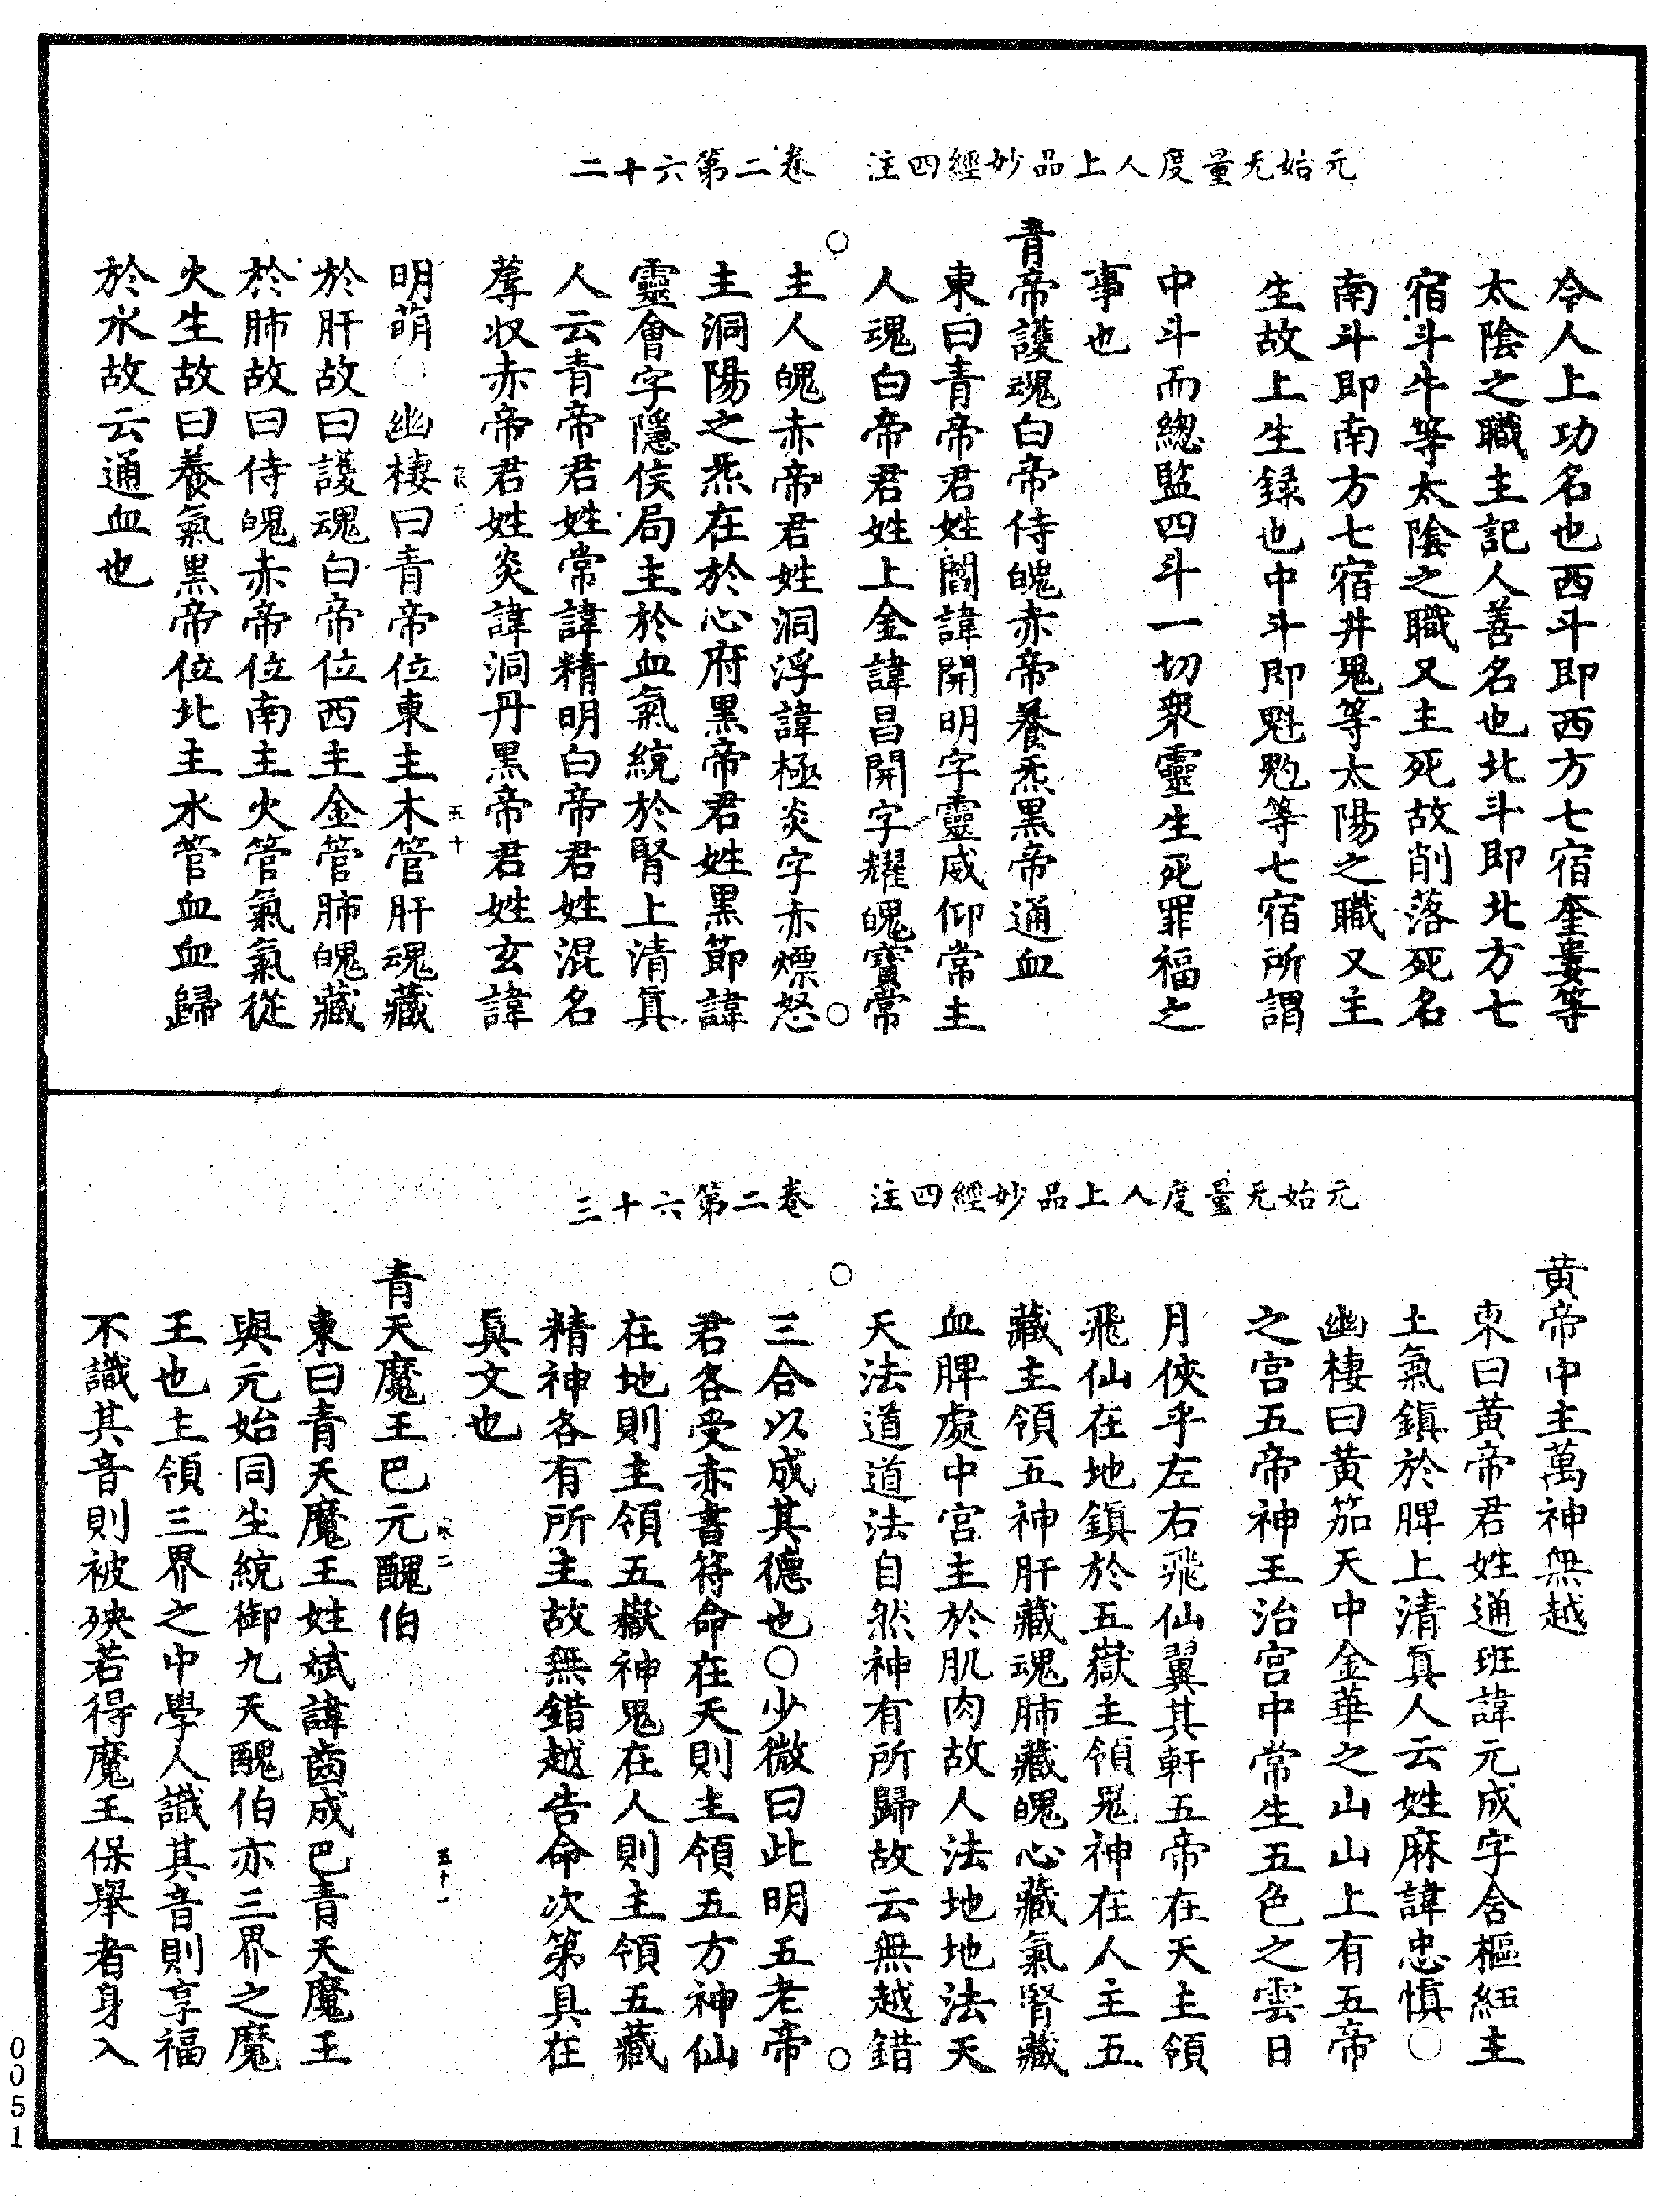 元始无量度人上品妙經四注　卷二第六十二
令人上功名也西斗即西方七宿奎婁等
太陰之職主記人善名也北斗即北方七
宿斗牛等太陰之職又主死故削落死名
南斗即南方七宿井鬼等太陽之職又主
生故上生錄也中斗即魁魒等七宿所謂
中斗而總監四斗一切衆靈生死罪福之
事也
青帝護魂白帝侍魄赤帝養炁黑帝通血
東曰青帝君姓閻諱開明字靈威仰常主
人魂白帝君姓上金諱昌開字耀魄寶常
主人魄赤帝君姓洞浮諱極炎字赤熛怒
主洞陽之炁在於心府黑帝君姓黑節諱
靈會字隱侯局主於血氣統於腎上清真
人云青帝君姓常諱精明白帝君姓混名
蓐收赤帝君姓炎諱洞丹黑帝君姓玄諱
明萌○幽棲曰青帝位東主木管肝魂藏
於肝故曰護魂白帝位西主金管肺魄藏
於肺故曰侍魄赤帝位南主火管氣氣從
火生故曰養氣黑帝位北主水管血血歸
於水故云通血也
五十
元始无量度人上品妙經四注　卷二第六十三
黃帝中主萬神無越
東曰黃帝君姓通班諱元成字含樞紐主
土氣鎮於脾上清真人云姓麻諱忠慎○
幽棲曰黃笳天中金華之山山上有五帝
之宮五帝神王治宮中常生五色之雲日
月俠乎左右飛仙翼其軒五帝在天主領
飛仙在地鎮於五嶽主領鬼神在人主五
藏主領五神肝藏魂肺藏魄心藏氣腎藏
血脾處中宮主於肌肉故人法地地法天
天法道道法自然神有所歸故云無越錯
三合以成其德也○少微曰此明五老帝
君各受赤書符命在天則主領五方神仙
在地則主領五嶽神鬼在人則主領五藏
精神各有所主故無錯越告命次第具在
真文也
青天魔王巴元醜伯
東曰青天魔王姓斌諱齒成巴青天魔王
與元始同生統御九天醜伯亦三界之魔
王也主領三界之中學人識其音則享福
不識其音則被殃若得魔王保舉者身入
五十一
0051